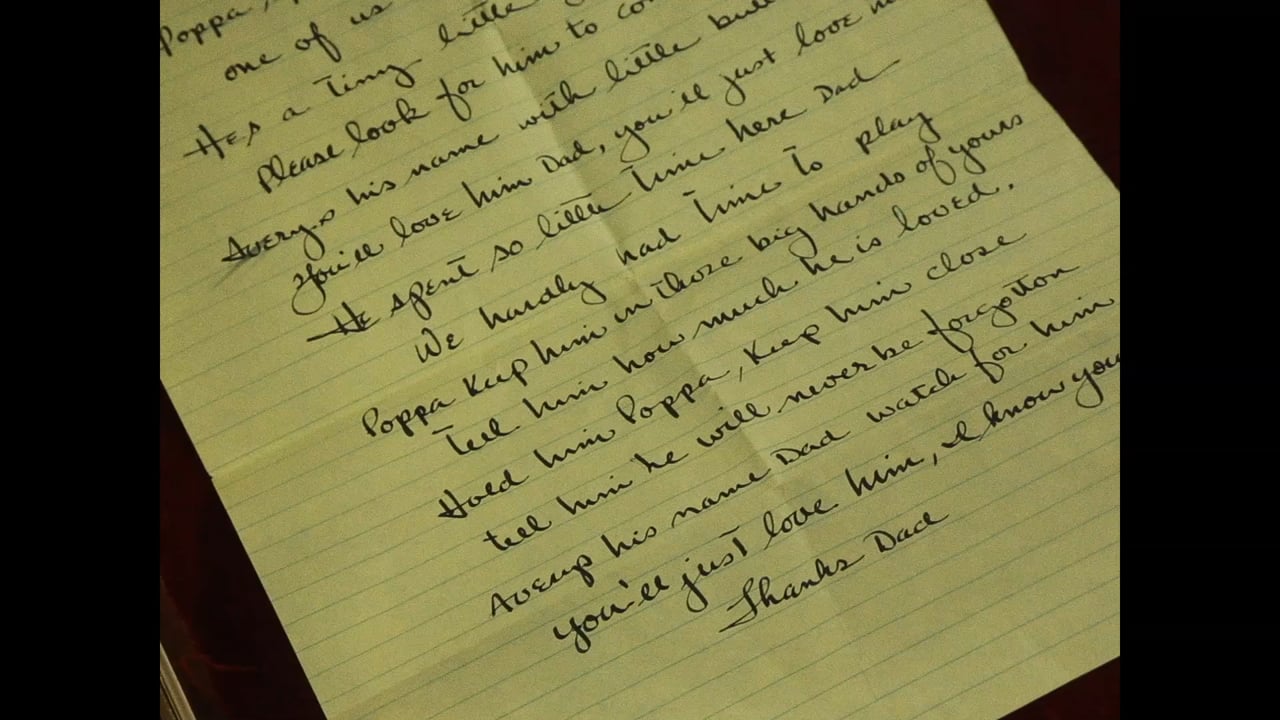 Poppa,
one of us
He's a Tiny little
Please look for him to
Avery's his name with little
You'll love him Dad, you'll just love
He spent so little Time here Dad
We hardly had Time To play
Poppa Keep him in Those big hands of yours
Tell him how much he is loved.
Hold him Poppa, Keep him close
tell him he will never be forgotton
Averys his name Dad watch for him
you'll just love him, I know you
Thanks Dad